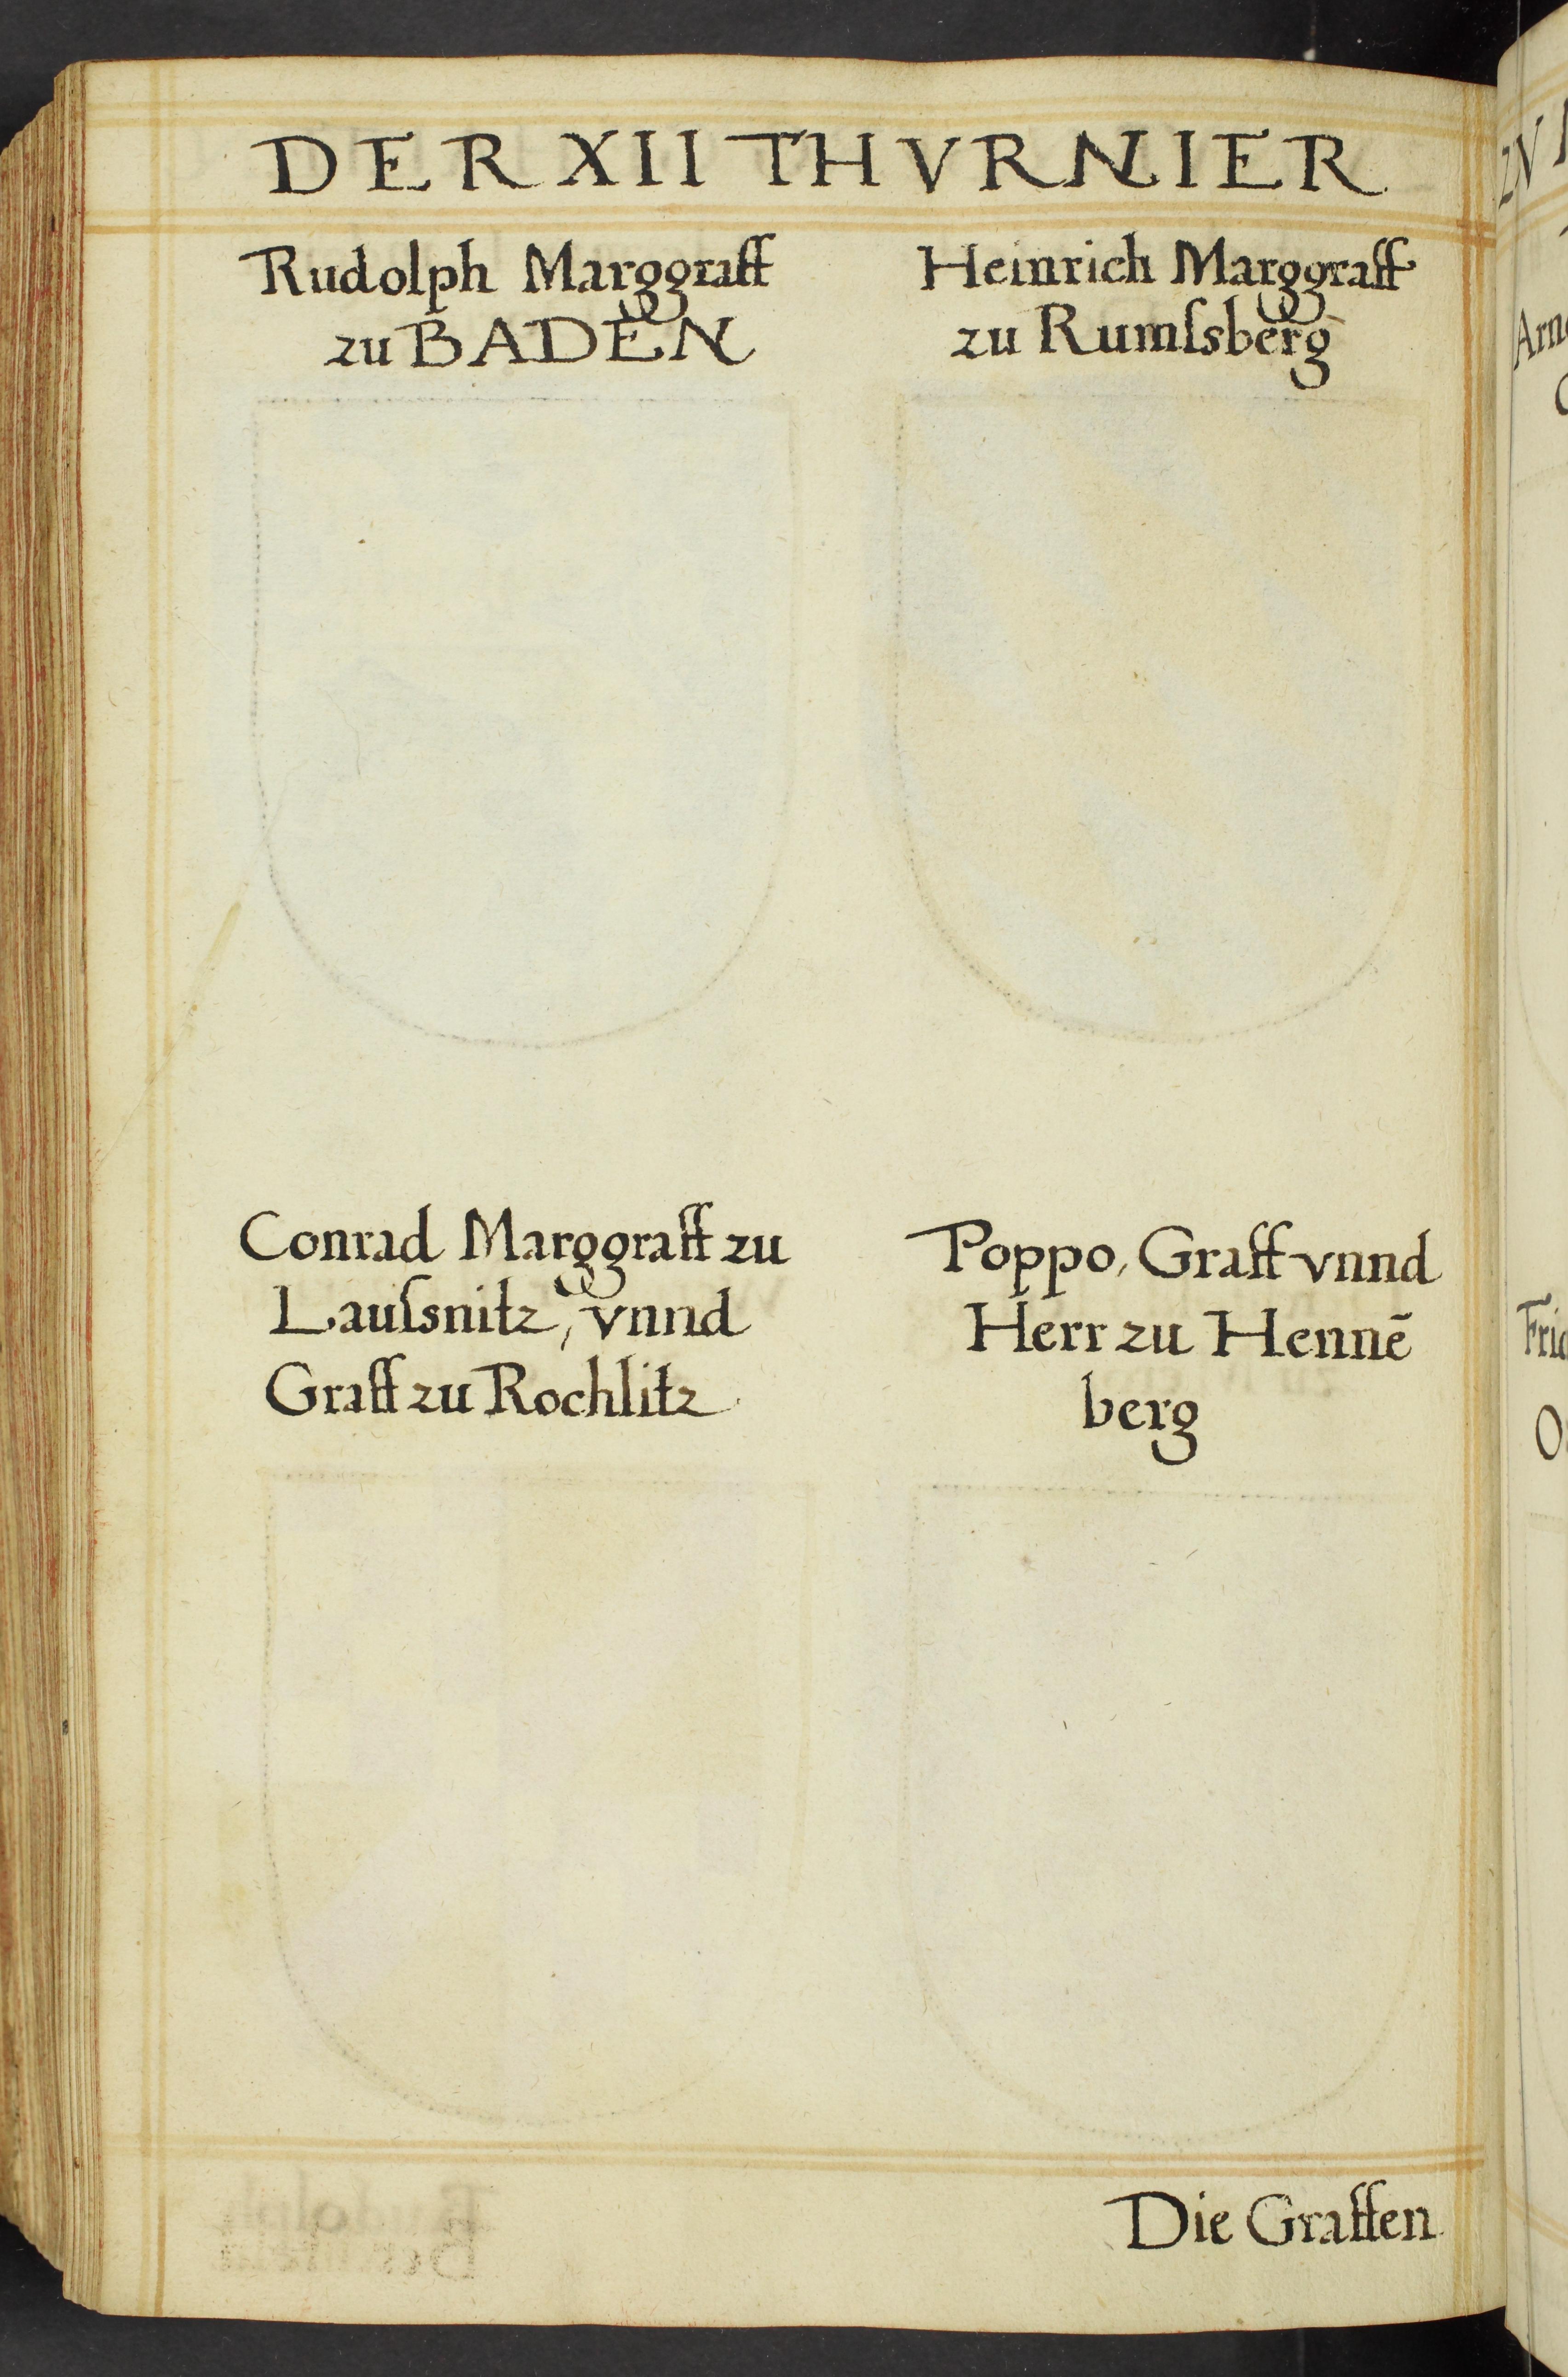 DER XII THVRNIER
Rudolph Marggraff
zu BADEN
Heinrich Marggraff
zu Rumſsberg
Conrad Marggraff zu
Lauſsnitz, vnnd
Graff zu Rochlitz
Poppo, Graff vnnd
Herr zu Hennē
berg
Die Graffen